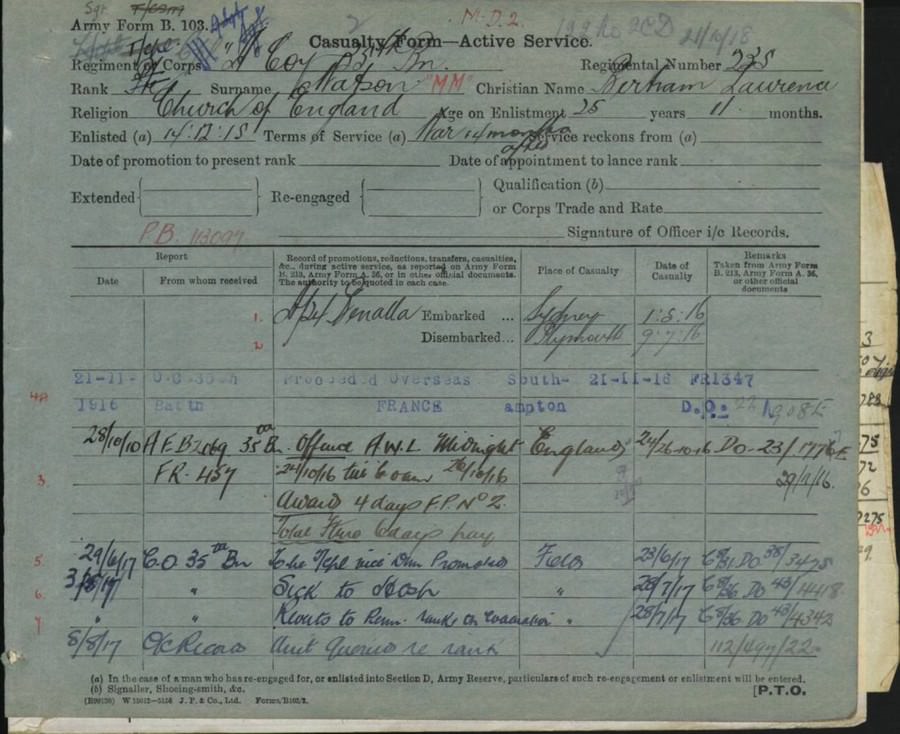 Sgt
Army Form B. 103.
M.D.2.
21/10/18
Casualty Form—Active Service.
Regiment or Corps "D" Coy 35th Bn. Regimental Number 235
Rank Surname Watson "MM" Christian Name Bertram Lawrence
Religion Church of England Age on Enlistment 25 years 11 months.
Enlisted (a) 14:12:15 Terms of Service (a) War & 4 months after Service reckons from (a)
Date of promotion to present rank Date of appointment to lance rank
Extended Re-engaged Qualification (b)
or Corps Trade and Rate
P.B. 113097 Signature of Officer i/c Records.
Report
Date From whom received
Record of promotions, reductions, transfers, casualties, &c., during active service, as reported on Army Form B. 213, Army Form A. 36, or in other official documents. The authority to be quoted in each case.
Place of Casualty
Date of Casualty
Remarks Taken from Army Form B. 213, Army Form A. 36, or other official documents
1. Benalla Embarked ... Sydney 1:5:16
2 Disembarked... Plymouth 9:7:16
21-11- O.C. 35th Proceeded Overseas South- 21-11-16 FR1347
4A 1916 Battn FRANCE ampton D.O. 22/
28/10/16 A.F.B 35th Bn. Offence A.W.L Midnight England 24/26-10-16 DO-23/
3 FR. 457 24/10/16 till 26/10/16
Award 4 days F.P. No 2.
Total 6 days pay
5. 29/6/17 C.O 35th Bn To be T/Cpl vice Promoted Field 23/6/17 DO 38/3475
6. " Sick to Hosp " 28/7/17 DO 43/4418
7 " " Reverts to Perm. rank on Evacuation " 28/7/17 DO 43/4342
8/8/17 O/C Records Unit queried re rank 112/497/22
(a) In the case of a man who has re-engaged for, or enlisted into Section D, Army Reserve, particulars of such re-engagement or enlistment will be entered.
(b) Signaller, Shoeing-smith, &c.
J. P. & Co., Ltd. Forms/B103/2.
[P.T.O.